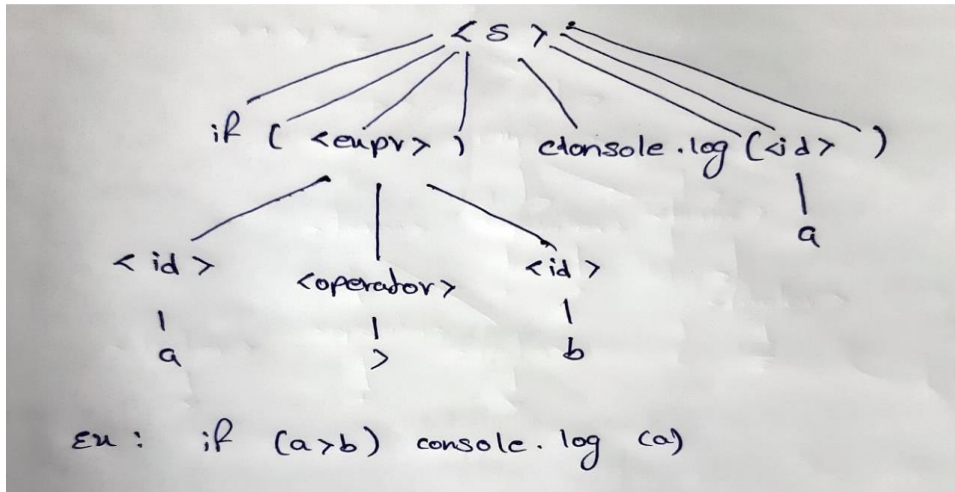 < S >
if ( <expr> ) console.log (<id> )
a
< id > <operator> <id >
a > b
Ex : if (a>b) console.log (a)